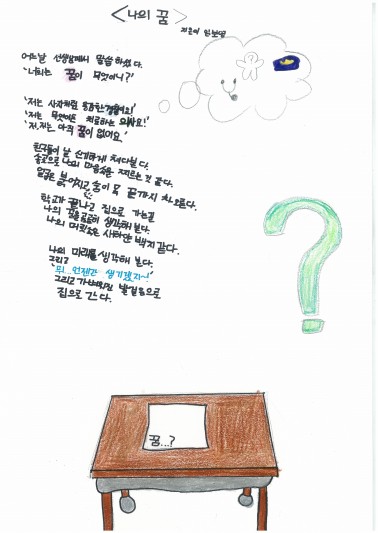 <나의 꿈>
지은이 임보영
어느날 선생님께서 말씀 하셨다.
"너희는 꿈이 무엇이니?"
'저는 사자처럼 용감한 경찰이요!'
'저는 무엇이든 치료하는 의사요!'
'저.저는 아직 꿈이 없어요.'
친구들이 날 신기하게 쳐다본다.
송곳으로 나의 마음속을 찌르는 것 같다.
얼굴은 붉어지고 숨이 목 끝까지 차오른다.
학교가 끝나고 집으로 가는길
나의 꿈을 곰곰히 생각해 본다.
나의 머릿속은 새하얀 백지같다.
나의 미래를 생각해 본다.
그리고
'뭐...언젠간 생기겠지~!'
그리고 가벼워진 발걸음으로
집으로 간다.
?
꿈...?